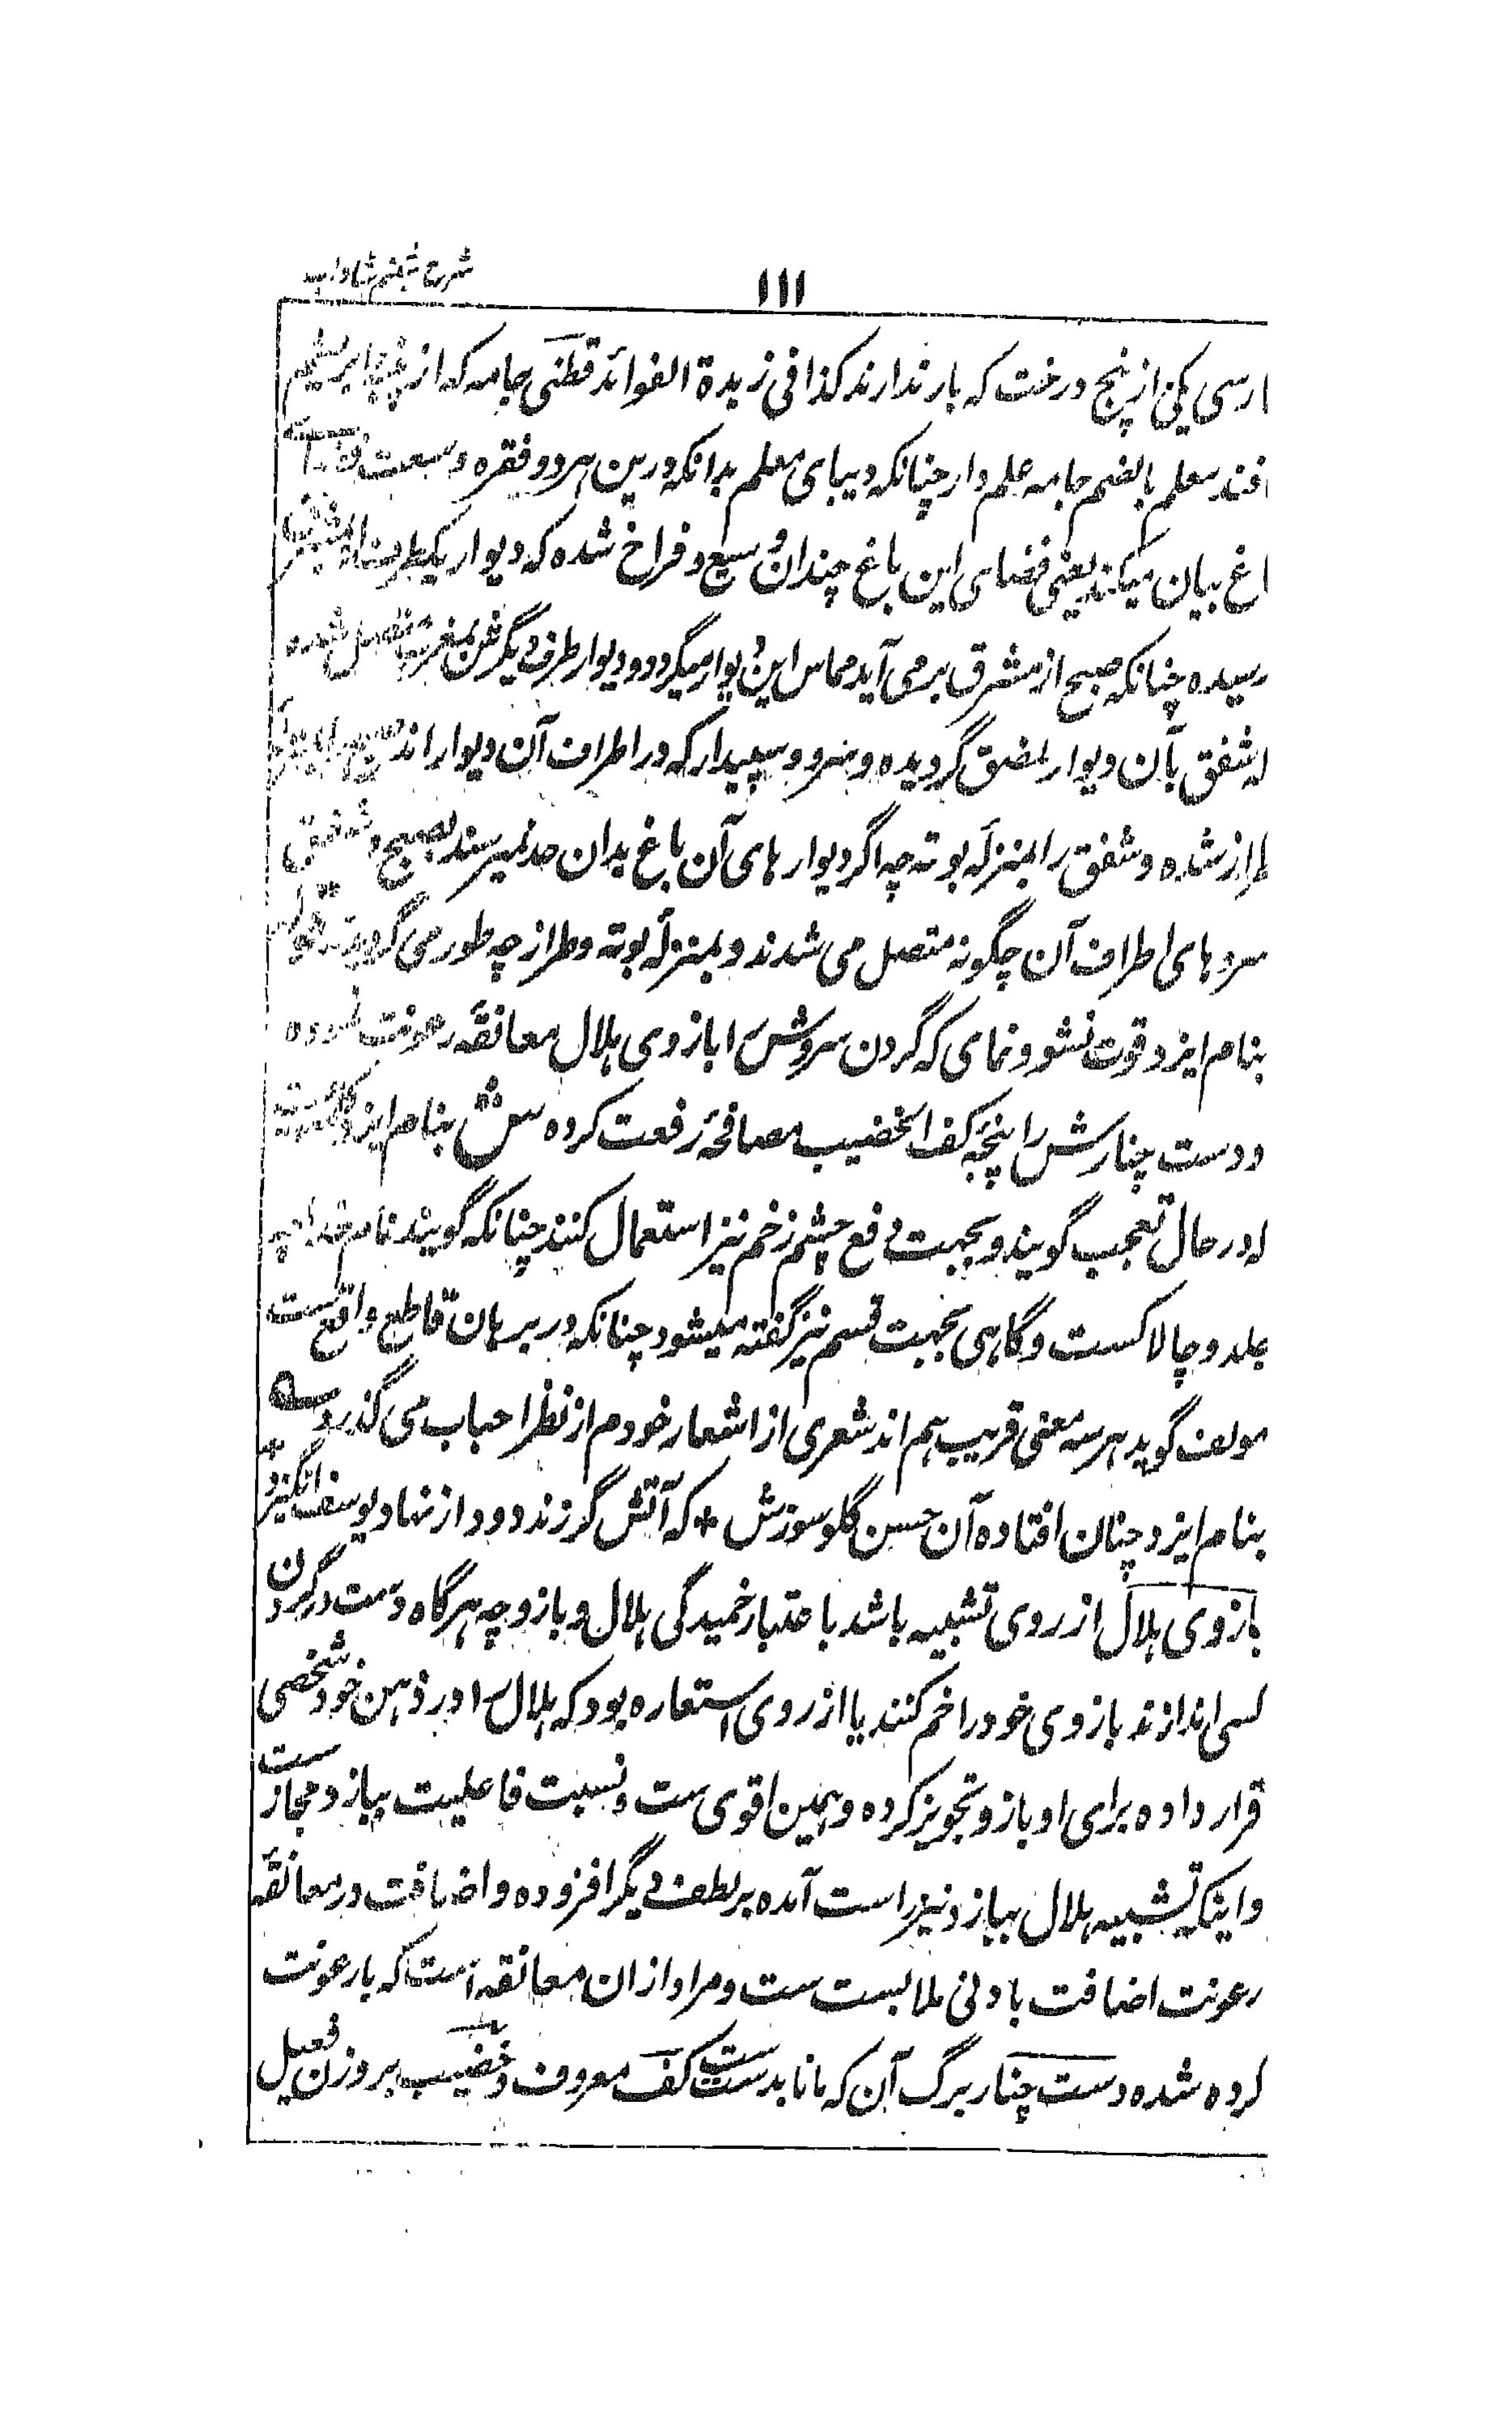 شرح شبنم شاداب
۱۱۱
ارسی یکی از پنج درخت که بار ندارند کذا فی زبدة الفوائد قطنی جامه که از غیر ابریشم
افند معلم بالضم جامه علم دار چنانکه دیبای معلم بدانکه درین هر دو فقره وسعت
اغ بیان میکند یعنی فضای این باغ چندان وسیع و فراخ شده که دیوار یکطرف
رسیده چنانکه صبح از مشرق برمی آید مماس این دیوار میگردد و دیوار طرف دیگرش بمغرب متصل شده
له شفق بآن دیوار لصق گردیده و سرو و سپیدار که در اطراف آن دیوار اند
طراز شده و شفق را بمنزله بوته چه اگر دیوار های آن باغ بدان حد نمیرسند بصبح و شفق
سرو های اطراف آن چگونه متصل می شدند و بمنزله بوته و طراز چه طور می گردیدند قوله
بنام ایزد قوت نشو و نمای که گردن سروش را بازوی هلال معانقه رعونت نموده
و دست چنارش را پنجه کف الخضیب مصافحه رفعت کرده ش بنام ایزد
له در حال تعجب گویند و بجهت دفع چشم زخم نیز استعمال کنند چنانکه گویند نام خدا چه
جلد و چالاکست و گاهی بجهت قسم نیز گفته میشود چنانکه در برهان قاطع واقع ست
مولف گوید هر سه معنی قریب هم اند شعری از اشعار خودم از نظر احباب می گذرد
بنام ایزد چنان افتاده آن حسن گلو سوزش * که آتش گر زند دود از نهاد یوسف انگیزد *
بازوی هلال از روی تشبیه باشد باعتبار خمیدگی هلال و بازو چه هرگاه دست در گردن
کسی اندازند بازوی خود را خم کنند یا از روی استعاره بود که هلال را در ذهن خود شخصی
قرار داده برای او بازو تجویز کرده و همین اقوی ست و نسبت فاعلیت ببازو مجاز ست
و اینکه تشبیه هلال ببازو نیز راست آمده بر لطف دیگر افزوده و اضافت در معانقه
رعونت اضافت بادنی ملابست ست و مراد از ان معانقه است که با رعونت
کرده شده دست چنار برگ آن که مانا بدست ست کف معروف و خضیب بر وزن فعیل